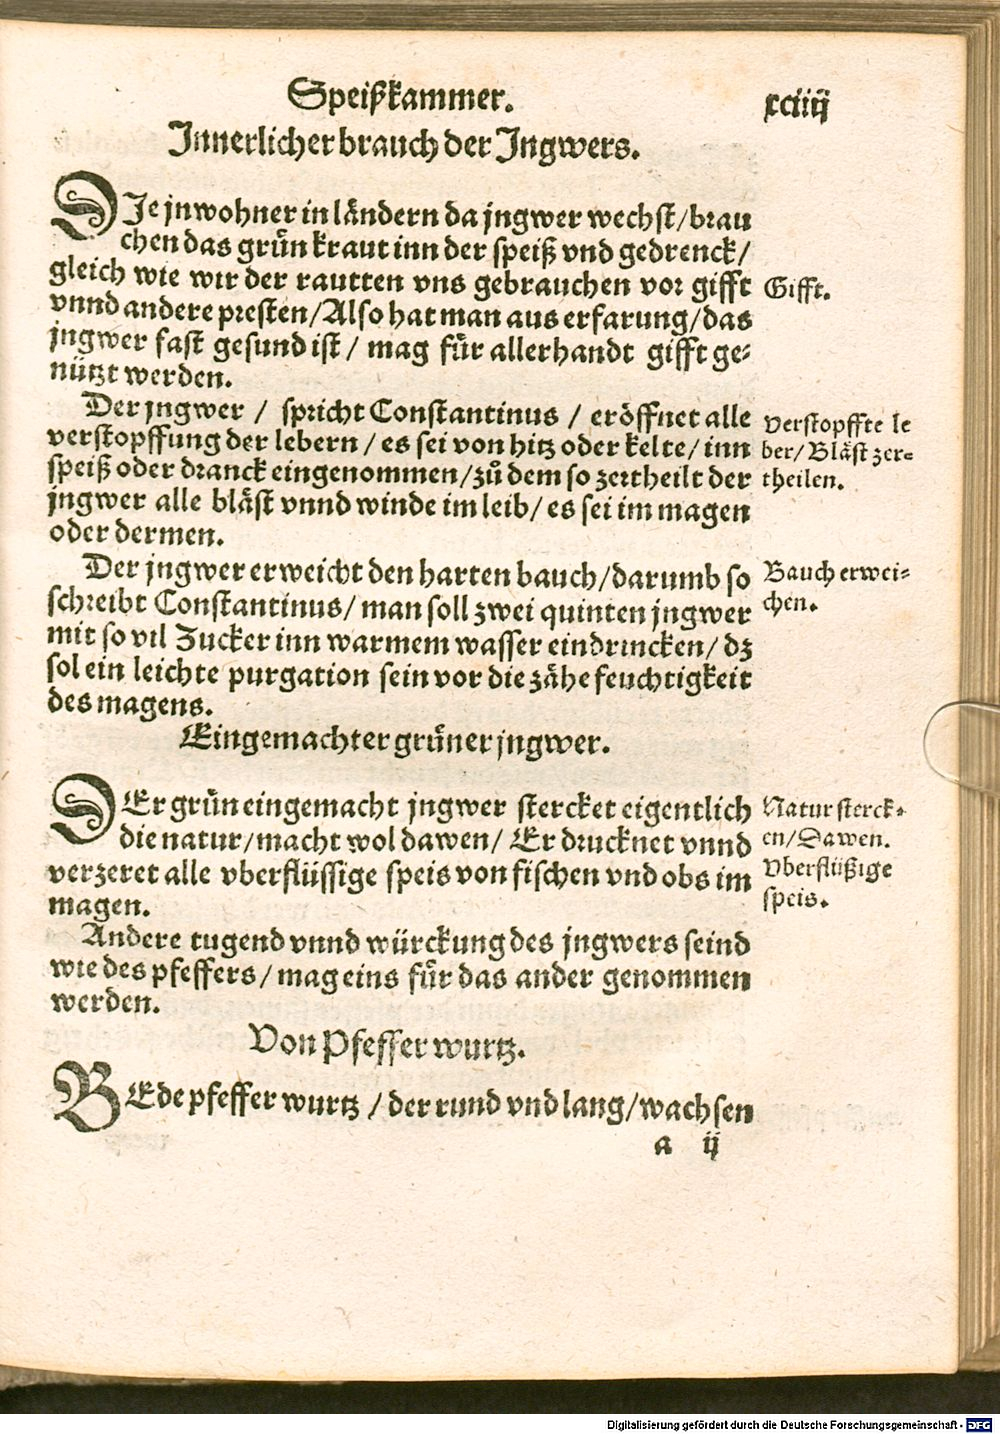 Speißkammer.
xciiij
Innerlicher brauch der Ingwers.
DIe jnwohner in ländern da jngwer wechst/brau
chen das grün kraut inn der speiß vnd gedrenck/
gleich wie wir der rautten vns gebrauchen vor gifft
vnnd andere presten/Also hat man aus erfarung/das
jngwer fast gesund ist / mag für allerhandt gifft ge-
nützt werden.
Gifft.
Der jngwer / spricht Constantinus / eröffnet alle
verstopffung der lebern / es sei von hitz oder kelte / inn
speiß oder dranck eingenommen/zů dem so zertheilt der
jngwer alle bläst vnnd winde im leib/ es sei im magen
oder dermen.
Verstopffte le
ber/Bläst zer-
theilen.
Der jngwer erweicht den harten bauch/darumb so
schreibt Constantinus/ man soll zwei quinten jngwer
mit so vil Zucker inn warmem wasser eindrincken/ dz
sol ein leichte purgation sein vor die zähe feuchtigkeit
des magens.
Bauch erwei-
chen.
Eingemachter grüner jngwer.
DEr grün eingemacht jngwer stercket eigentlich
die natur/macht wol dawen/ Er drucknet vnnd
verzeret alle vberflüssige speis von fischen vnd obs im
magen.
Natur sterck-
en/Dawen.
Vberflüßige
speis.
Andere tugend vnnd würckung des jngwers seind
wie des pfeffers/ mag eins für das ander genommen
werden.
Von Pfefferwurtz.
BEde pfefferwurtz /der rund vnd lang/wachsen
a ij
Digitalisierung gefördert durch die Deutsche Forschungsgemeinschaft - DFG